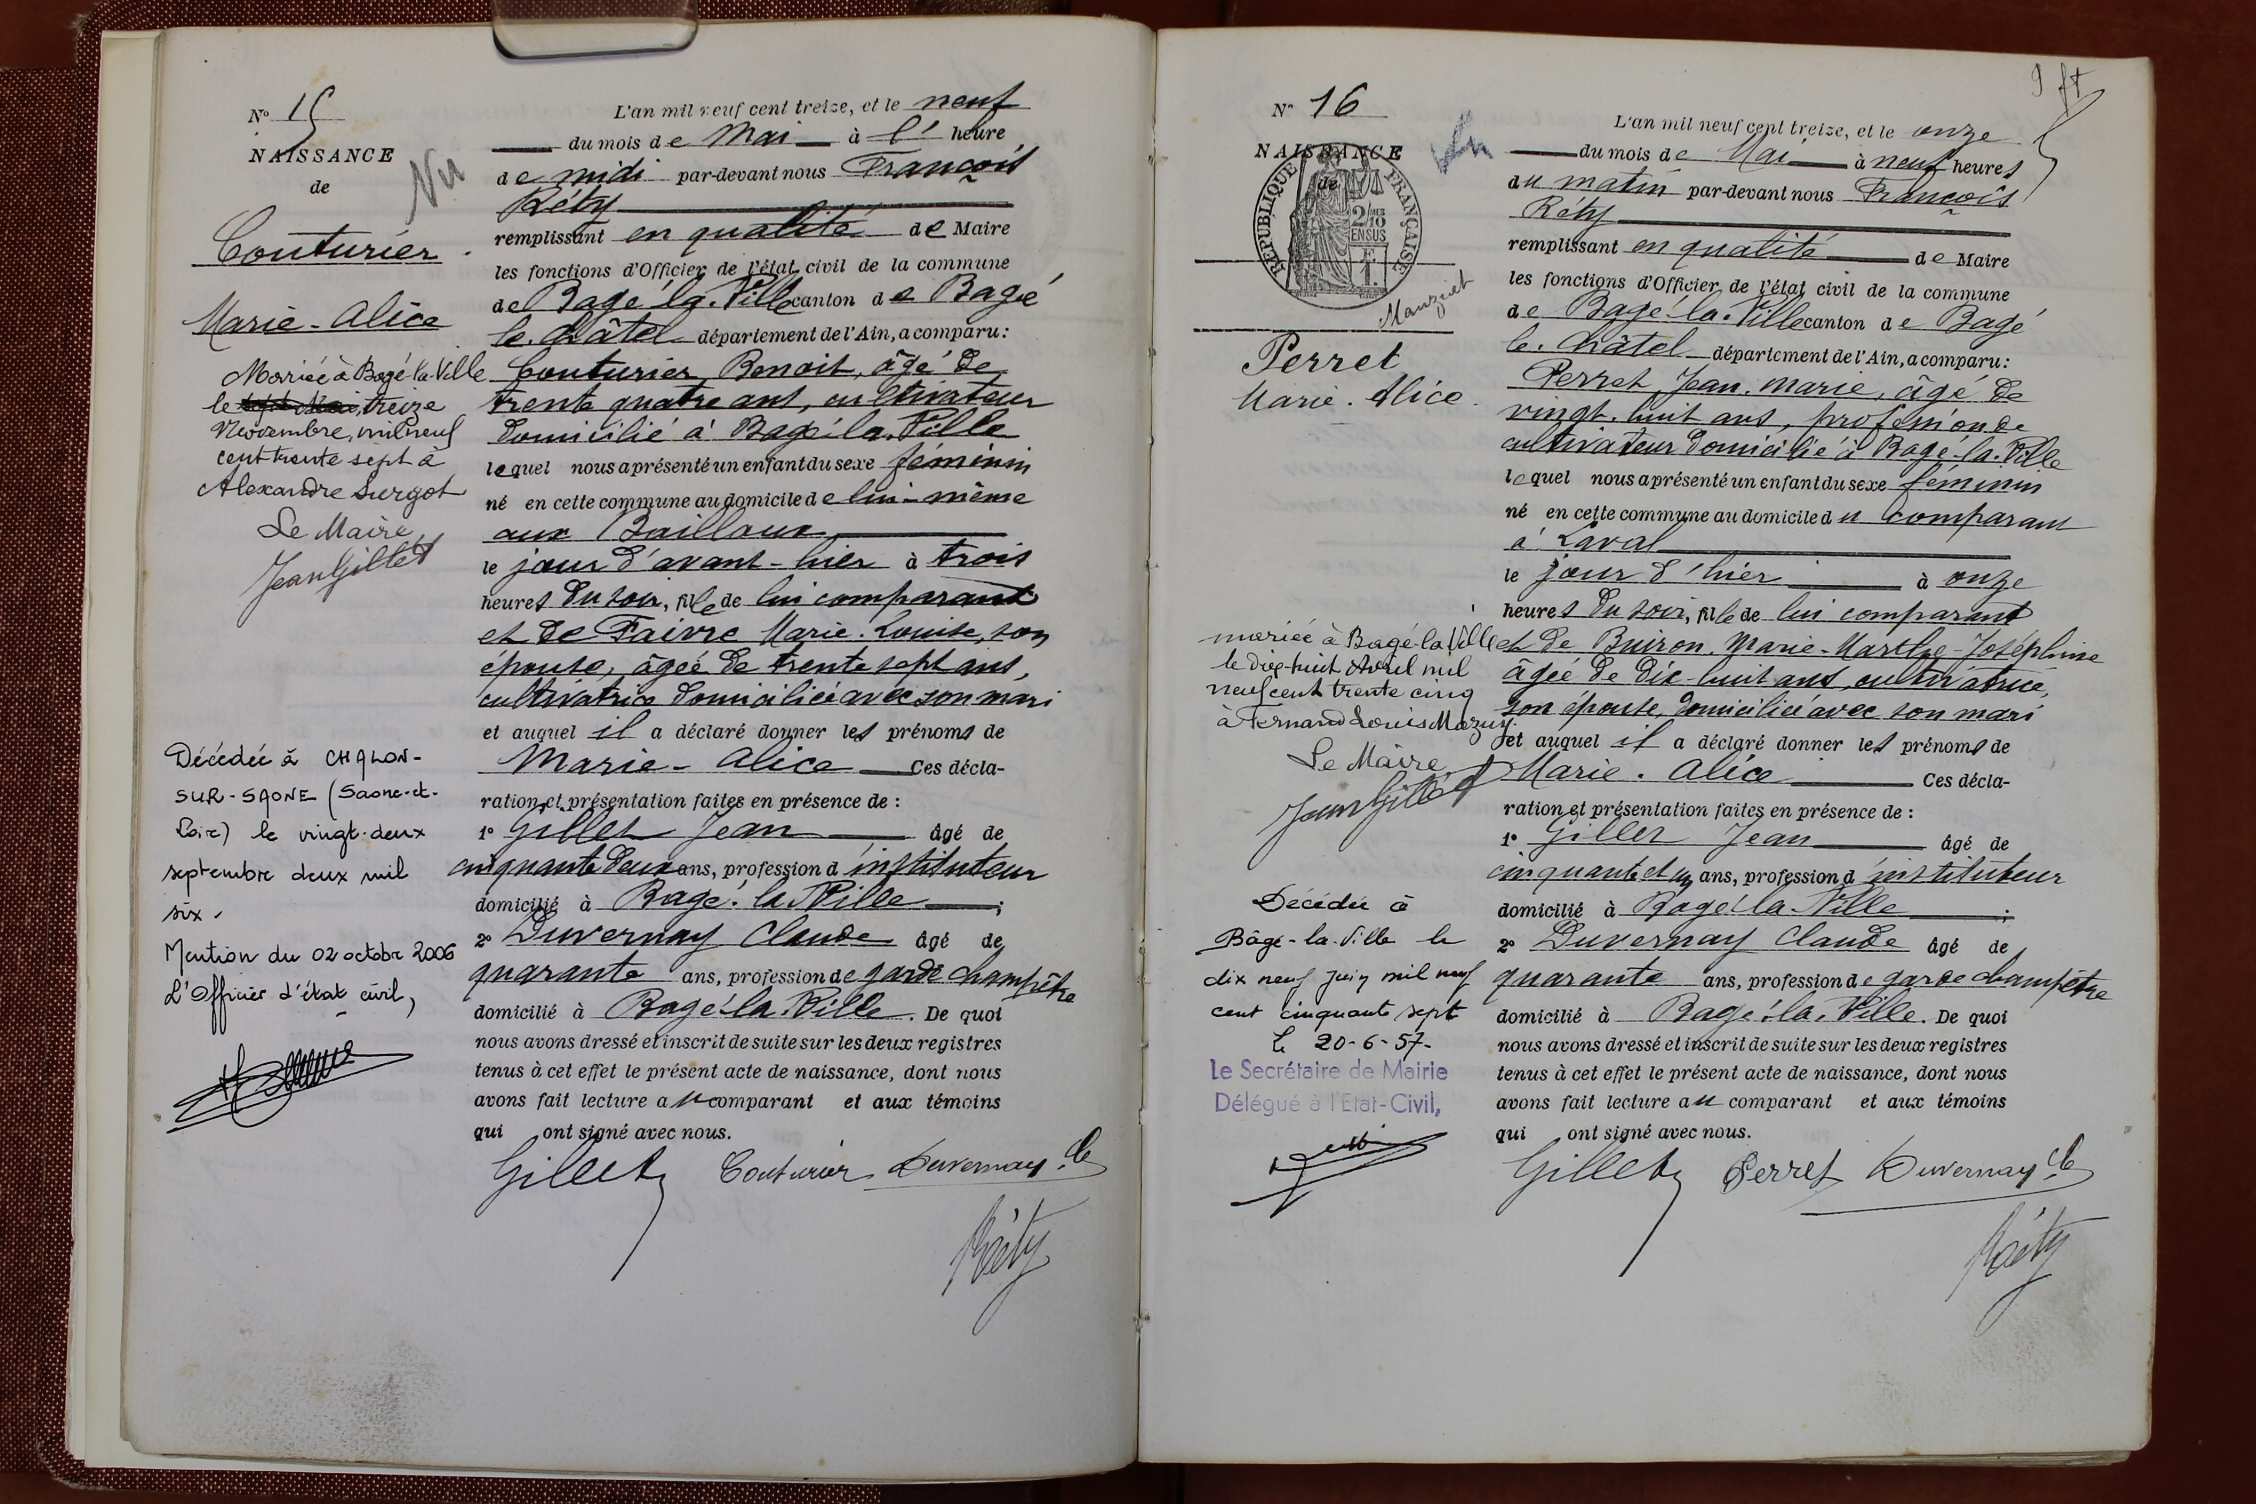 N° 15
NAISSANCE
de
Nu
Couturier
Marie-Alice
Mariée à Bagé-la-Ville
le treize
Novembre, mil neuf
cent trente sept à
Alexandre Surgot
Le Maire
Jean Gillet
Décédée à CHALON-
SUR-SAONE (Saone-et-
Loire) le vingt-deux
septembre deux mil
six.
Mention du 02 octobre 2006
L'Officier d'état civil,
L'an mil neuf cent treize, et le neuf
du mois de Mai à l' heure
de midi par-devant nous François
Réty
remplissant en qualité de Maire
les fonctions d'Officier de l'état civil de la commune
de Bagé-la-Ville canton de Bagé
le Châtel département de l'Ain, a comparu:
Couturier Benoit, âgé de
trente quatre ans, cultivateur
domicilié à Bagé-la-Ville
lequel nous a présenté un enfant du sexe féminin
né en cette commune au domicile de lui-même
aux Bailloux
le jour d'avant-hier à trois
heures du soir, fille de lui comparant
et de Faivre Marie-Louise, son
épouse, âgée de trente sept ans,
cultivatrice domiciliée avec son mari
et auquel il a déclaré donner les prénoms de
Marie-Alice Ces décla-
ration et présentation faites en présence de :
1° Gillet Jean âgé de
cinquante deux ans, profession d'instituteur
domicilié à Bagé-la-Ville ;
2° Duvernay Claude âgé de
quarante ans, profession de garde champêtre
domicilié à Bagé-la-Ville. De quoi
nous avons dressé et inscrit de suite sur les deux registres
tenus à cet effet le présent acte de naissance, dont nous
avons fait lecture au comparant et aux témoins
qui ont signé avec nous.
Gillet Couturier Duvernay Cde
Réty
9 ft
N° 16
NAISSANCE
de
RÉPUBLIQUE FRANÇAISE
2/10 EN SUS
1 F.
Manziat
Perret
Marie-Alice
mariée à Bagé-la-Ville
le dix-huit Avril mil
neuf cent trente cinq
à Fernand Louis Mazuy.
Le Maire
Jean Gillet
Décédée à
Bâgé-la-Ville le
dix neuf Juin mil neuf
cent cinquante sept
Le 20-6-57-
Le Secrétaire de Mairie
Délégué à l'Etat-Civil,
L'an mil neuf cent treize, et le onze
du mois de Mai à neuf heures
du matin par-devant nous François
Réty
remplissant en qualité de Maire
les fonctions d'Officier de l'état civil de la commune
de Bagé-la-Ville canton de Bagé
le Châtel département de l'Ain, a comparu:
Perret, Jean-Marie, âgé de
vingt-huit ans, profession de
cultivateur domicilié à Bagé-la-Ville
lequel nous a présenté un enfant du sexe féminin
né en cette commune au domicile du comparant
à Laval
le jour d'hier à onze
heures du soir, fille de lui comparant
et de Buiron Marie-Marthe-Joséphine
âgée de dix-huit ans, cultivatrice,
son épouse, domiciliée avec son mari
et auquel il a déclaré donner les prénoms de
Marie-Alice Ces décla-
ration et présentation faites en présence de :
1° Gillet Jean âgé de
cinquante et un ans, profession d'instituteur
domicilié à Bagé-la-Ville ;
2° Duvernay Claude âgé de
quarante ans, profession de garde champêtre
domicilié à Bagé-la-Ville. De quoi
nous avons dressé et inscrit de suite sur les deux registres
tenus à cet effet le présent acte de naissance, dont nous
avons fait lecture au comparant et aux témoins
qui ont signé avec nous.
Gillet Perret Duvernay Cde
Réty